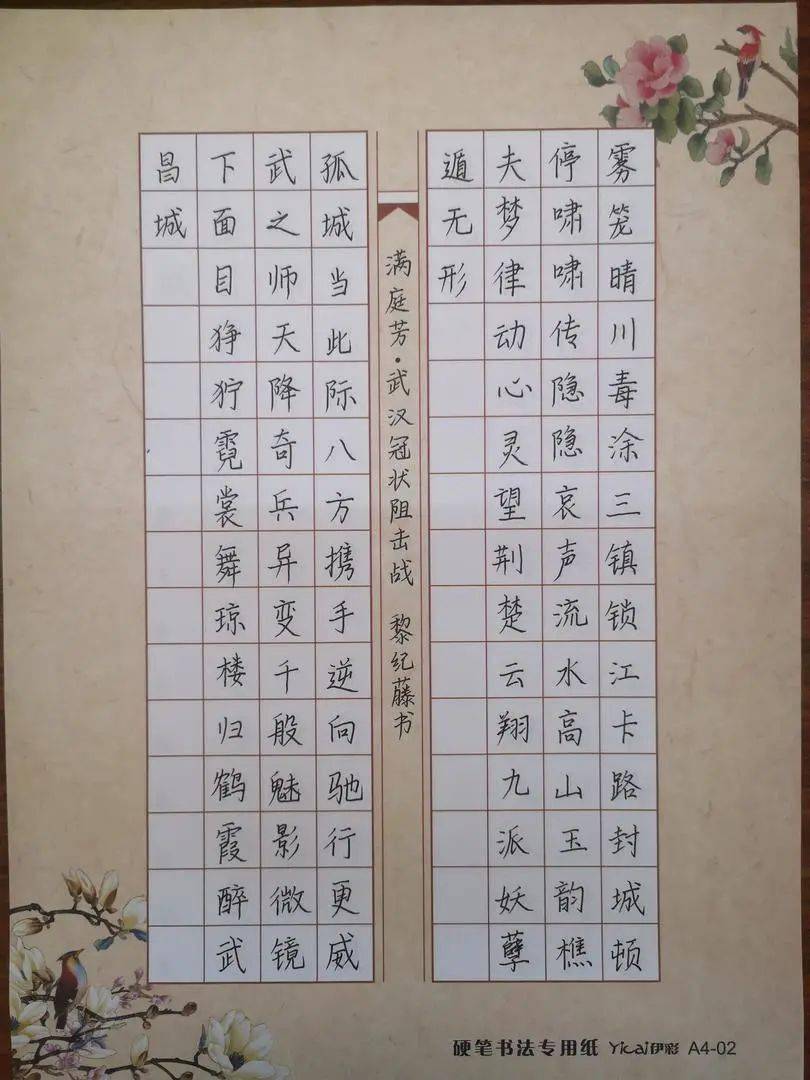 雾笼晴川毒涂三镇锁江卡路封城顿
停啸啸传隐隐哀声流水高山玉韵樵
夫梦律动心灵望荆楚云翔九派妖孽
遁无形
满庭芳·武汉冠状阻击战 黎纪藤书
孤城当此际八方携手逆向驰行更威
武之师天降奇兵异变千般魅影微镜
下面目狰狞霓裳舞琼楼归鹤霞醉武
昌城
硬笔书法专用纸 Yicai伊彩 A4-02